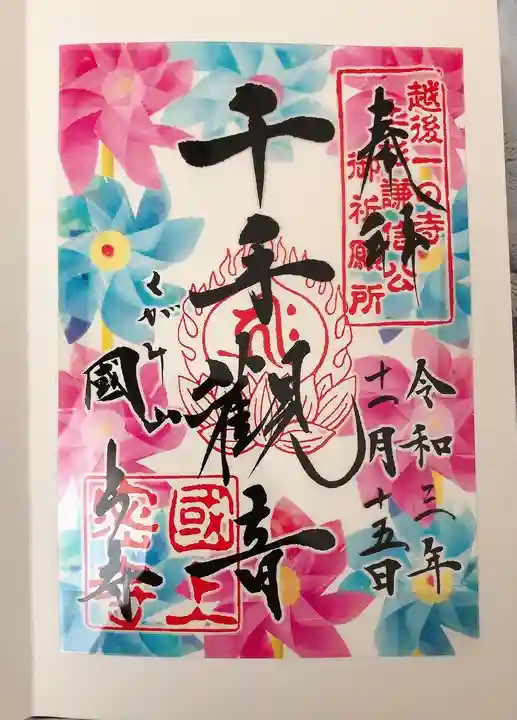 越後一の寺
上杉謙信公
御祈願所
奉拝
令和三年
十一月十五日
千手觀音
くがみ山
國上寺
國上